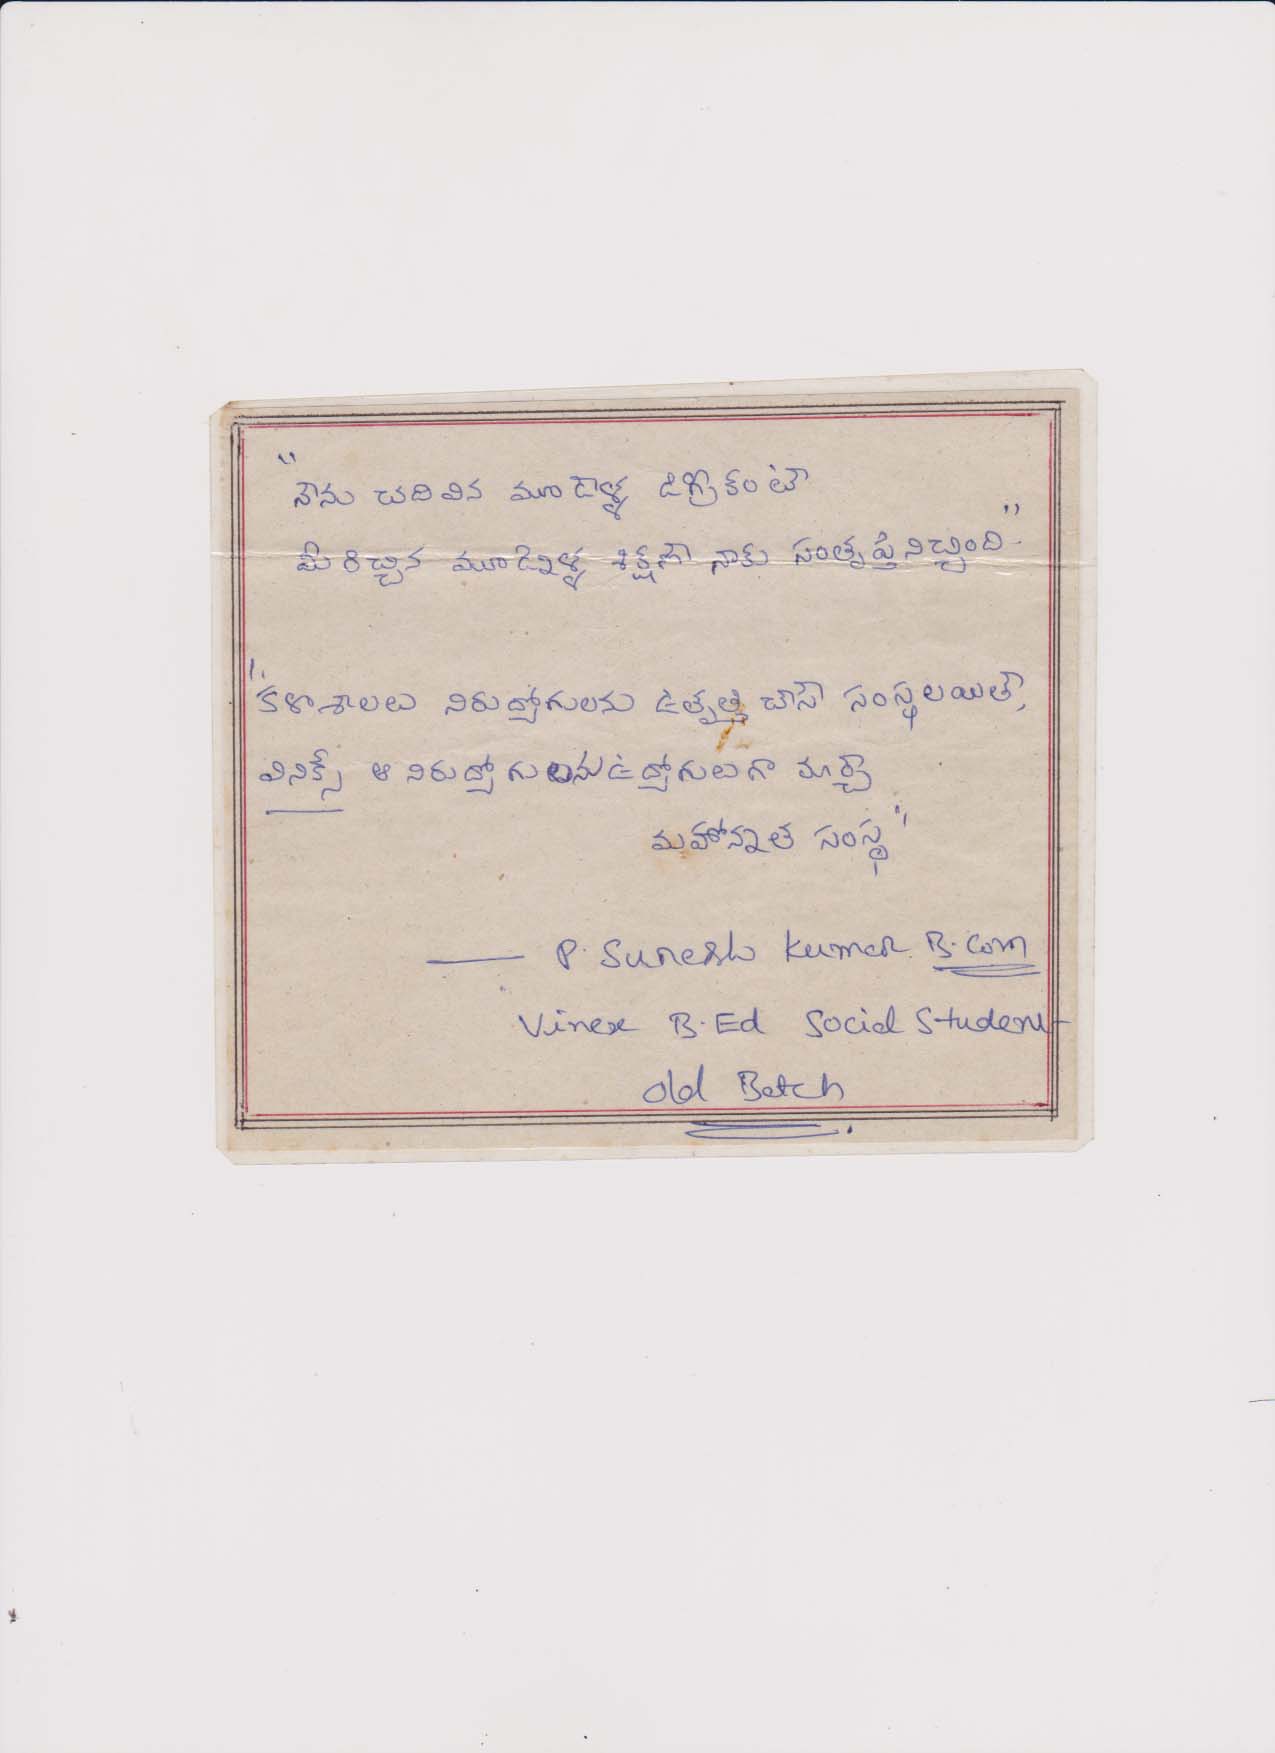 "నేను చదివిన మూడేళ్ళ డిగ్రీకంటే
మీరిచ్చిన మూడ్నెళ్ళ శిక్షణే నాకు సంతృప్తినిచ్చింది"
"కళాశాలలు నిరుద్యోగులను ఉత్పత్తి చేసే సంస్థలయితే,
వినెక్స్ ఆ నిరుద్యోగులను ఉద్యోగులుగా మార్చే
మహోన్నత సంస్థ"
— P. Suresh Kumar B.Com
Vinex B.Ed Social Student
Old Batch.